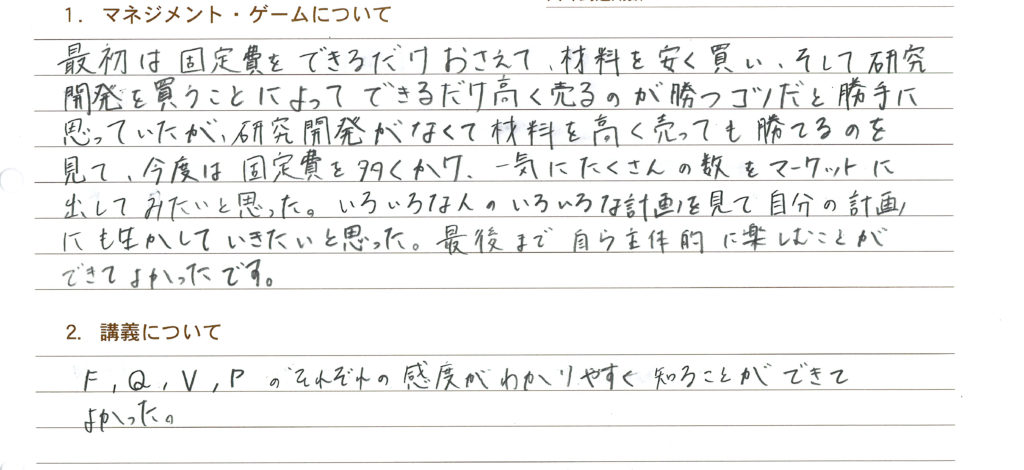 1. マネジメント・ゲームについて
最初は固定費をできるだけおさえて、材料を安く買い、そして研究
開発を買うことによってできるだけ高く売るのが勝つコツだと勝手に
思っていたが、研究開発がなくて材料を高く売っても勝てるのを
見て、今度は固定費を多くかけ、一気にたくさんの数をマーケットに
出してみたいと思った。いろいろな人のいろいろな計画を見て自分の計画
にも生かしていきたいと思った。最後まで自ら主体的に楽しむことが
できてよかったです。
2. 講義について
F, Q, V, Pのそれぞれの感度がわかりやすく知ることができて
よかった。